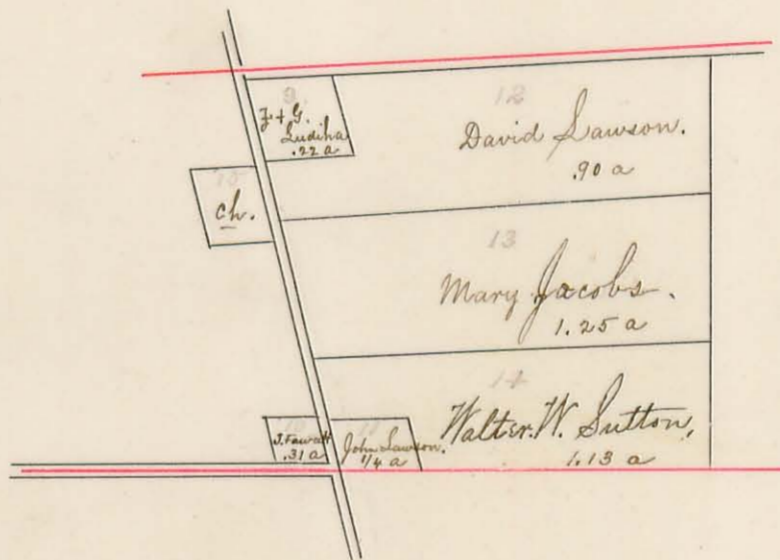 9
J. & G.
Ludiha
.22 a
12
David Lawson.
.90 a
15
ch.
13
Mary Jacobs.
1.25 a
14
Walter. W. Sutton.
1.13 a
10
J. Fawcett
.31 a
11
John Lawson.
1/4 a